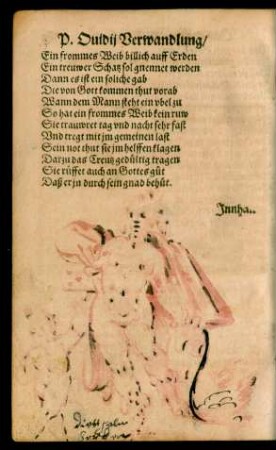 P. Ouidij Verwandlung/
Ein frommes Weib billich auff Erden
Ein treuwer Schatz sol gnennet werden
Dann es ist ein soliche gab
Die von Gott kommen thut vorab
Wann dem Mann steht ein vbel zu
So hat ein frommes Weib kein ruw
Sie trauwret tag vnd nacht sehr fast
Vnd tregt mit jm gemeinen last
Sein not thut sie jm helffen klagen
Darzu das Creutz gedültig tragen
Sie rüffet auch an Gottes güt
Daß er jn durch sein gnad behüt.
Innha..